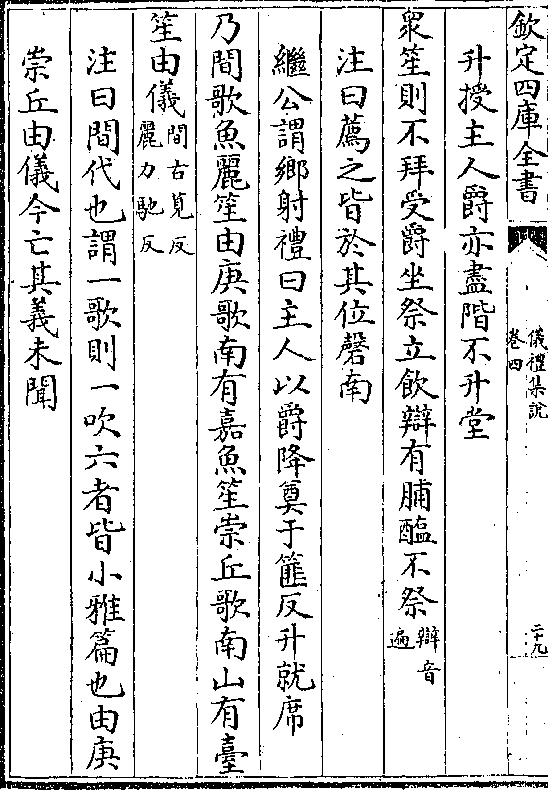 欽定四庫全書
儀禮集說
卷四
二十九
升授主人爵亦盡階不升堂
衆笙則不拜受爵坐祭立飲辯有脯醢不祭辯音遍
注曰薦之皆於其位磬南
繼公謂鄉射禮曰主人以爵降奠于篚反升就席
乃間歌魚麗笙由庚歌南有嘉魚笙崇丘歌南山有臺
笙由儀間古莧反麗力馳反
注曰間代也謂一歌則一吹六者皆小雅篇也由庚
崇丘由儀今亡其義未聞